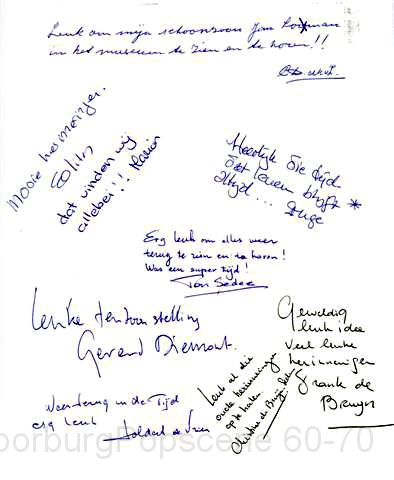 Leuk om mijn schoonzoon Jan
in het museum te zien en te horen!!
Mooie herinneringen.
dat vinden wij
allebei!! Marion
Heerlijk die tijd
Dat leven blijft
Altijd ... Inge
Erg leuk om alles weer
terug te zien en te horen!
Was een super tijd!
Ton Sedee
Leuke tentoonstelling
Gerard Diemont.
Geweldig
leuk idee
veel leuke
herinneringen
Frank de
Bruyn
Leuk al die
oude herinneringen
op te halen
Christine de Bruijn
Weer terug in de Tijd
erg leuk
oorburgPopscene 60-70